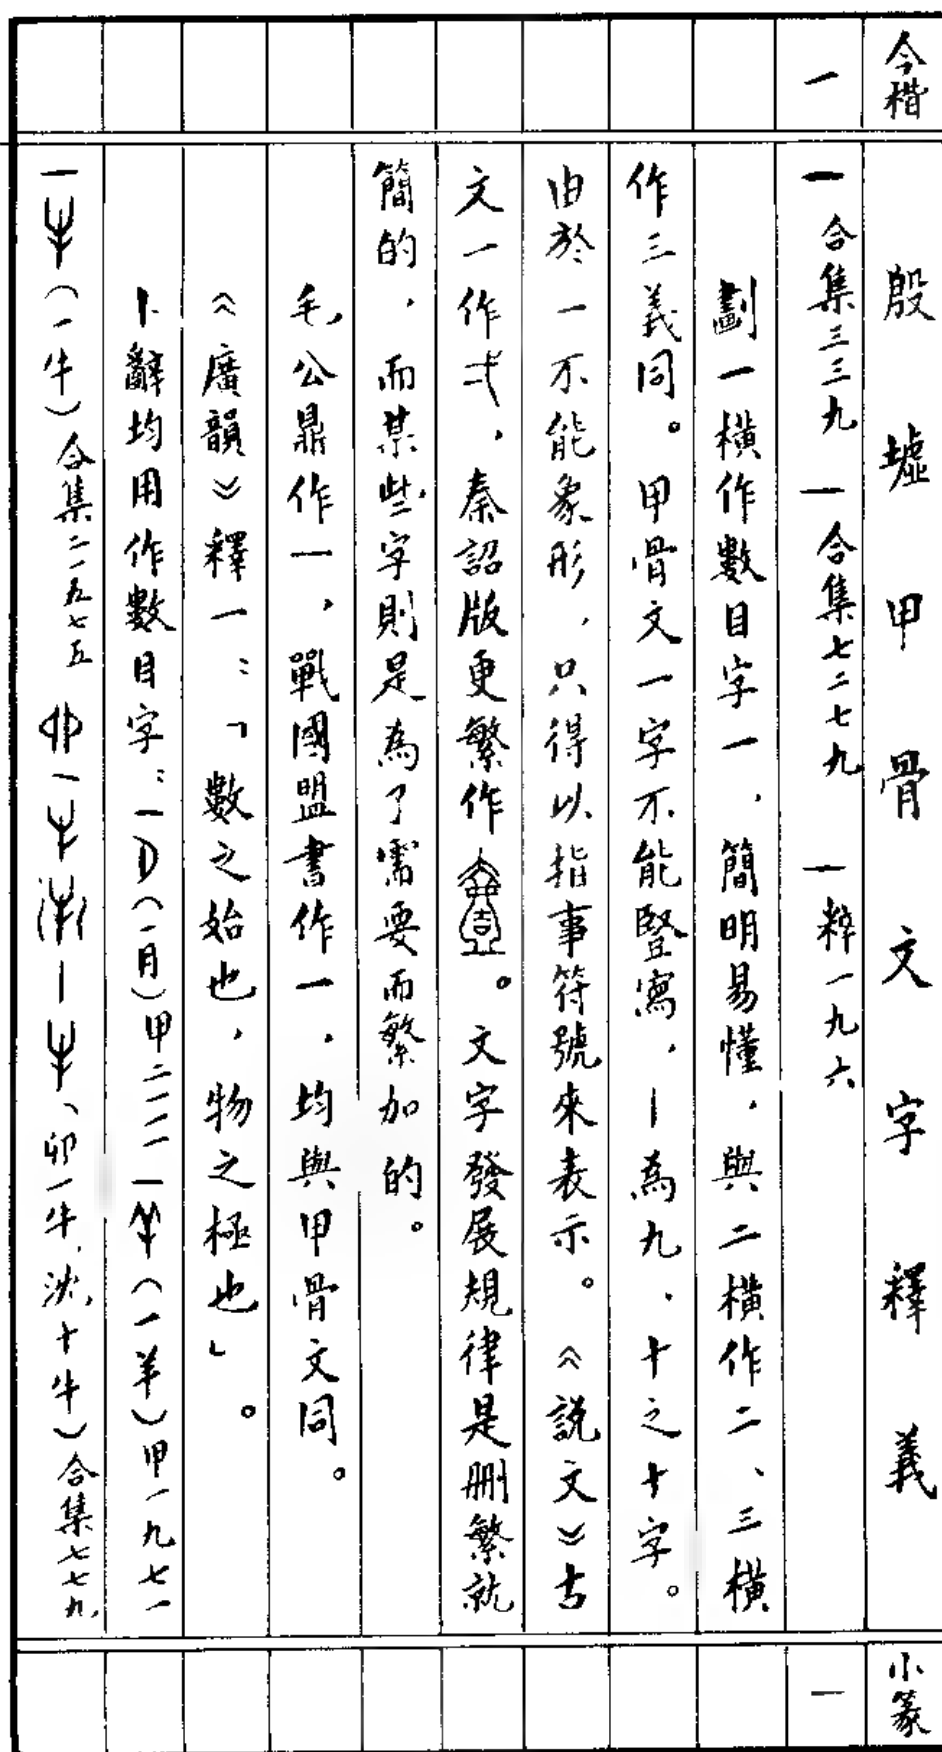 今楷 殷墟甲骨文字釋義 小篆
一 一 合集三三九 一 合集七二七九 一 粹一九六 一
劃一橫作數目字一，簡明易懂，與二橫作二、三橫
作三義同。甲骨文一字不能豎寫，丨為九、十之十字。
由於一不能象形，只得以指事符號來表示。《説文》古
文一作弌，秦詔版更繁作。文字發展規律是刪繁就
簡的，而某些字則是為了需要而繁加的。
毛公鼎作一，戰國盟書作一，均與甲骨文同。
《廣韻》釋一：「數之始也，物之極也」。
卜辭均用作數目字：一（一月）甲二一一一（一羊）甲一九七一
一（一牛）合集二一五七五 一 丨、卯一牛、沈十牛）合集七七九